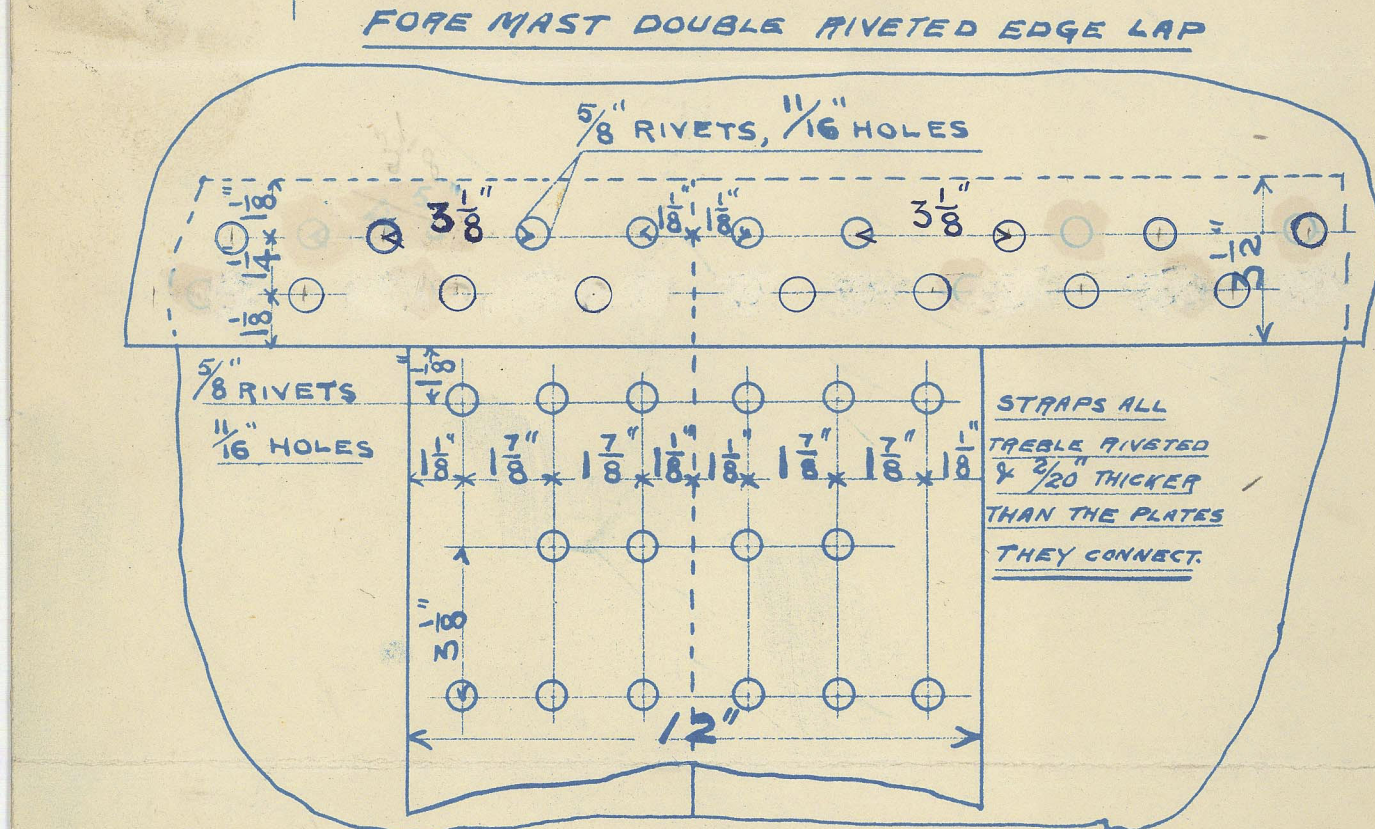 FORE MAST DOUBLE RIVETED EDGE LAP
5/8" RIVETS, 11/16" HOLES
1 1/8"
1 1/4
1 1/8
3 1/8"
1 1/8" 1 1/8"
3 1/8"
3 1/2"
5/8" RIVETS
11/16" HOLES
1 1/8"
1 1/8" 1 7/8" 1 7/8" 1 1/8" 1 1/8" 1 7/8" 1 7/8" 1 1/8"
STRAPS ALL
TREBLE RIVETED
& 2/20" THICKER
THAN THE PLATES
THEY CONNECT.
3 1/8"
12"